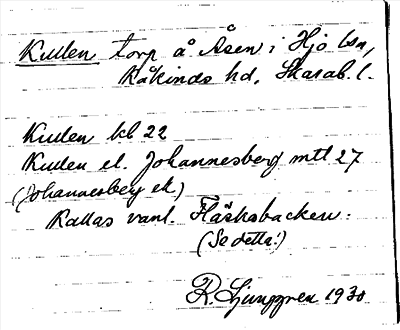 Kullen torp å Åsen i Hjo lsn,
Kåkinds hd, Skarab. l.
Kullen kb 22
Kullen el. Johannesberg mtl 27
(Johannesberg ek)
Kallas vanl. Fläsksbacken.
(Se detta!)
R. Ljunggren 1930